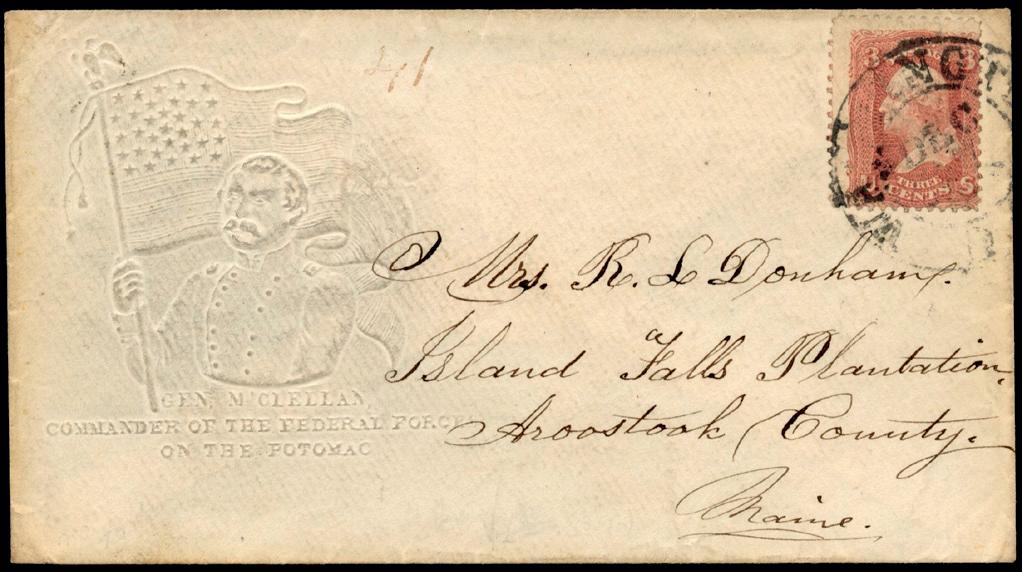 41
3 3
THREE
CENTS
GEN. McCLELLAN,
COMMANDER OF THE FEDERAL FORCES
ON THE POTOMAC
Mrs. R. L Donham.
Island Falls Plantation,
Aroostook County.
Maine.